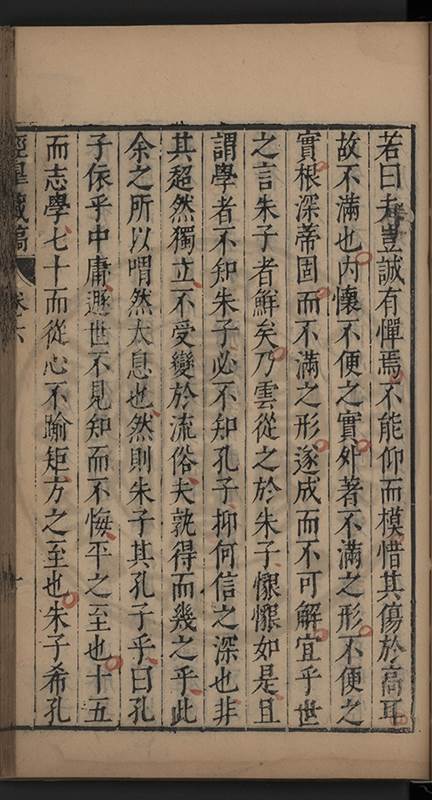 若曰夫豈誠有憚焉不能仰而模惜其傷於高耳
故不滿也内懷不便之實外著不滿之形不便之
實根深蒂固而不滿之形遂成而不可解宜乎世
之言朱子者鮮矣乃雲從之於朱子懷懷如是且
謂學者不知朱子必不知孔子抑何信之深也非
其超然獨立不受變於流俗夫孰得而幾之乎此
余之所以喟然太息也然則朱子其孔子乎曰孔
子依乎中庸遯世不見知而不悔平之至也十五
而志學七十而從心不踰矩方之至也朱子希孔
藏稿
卷六